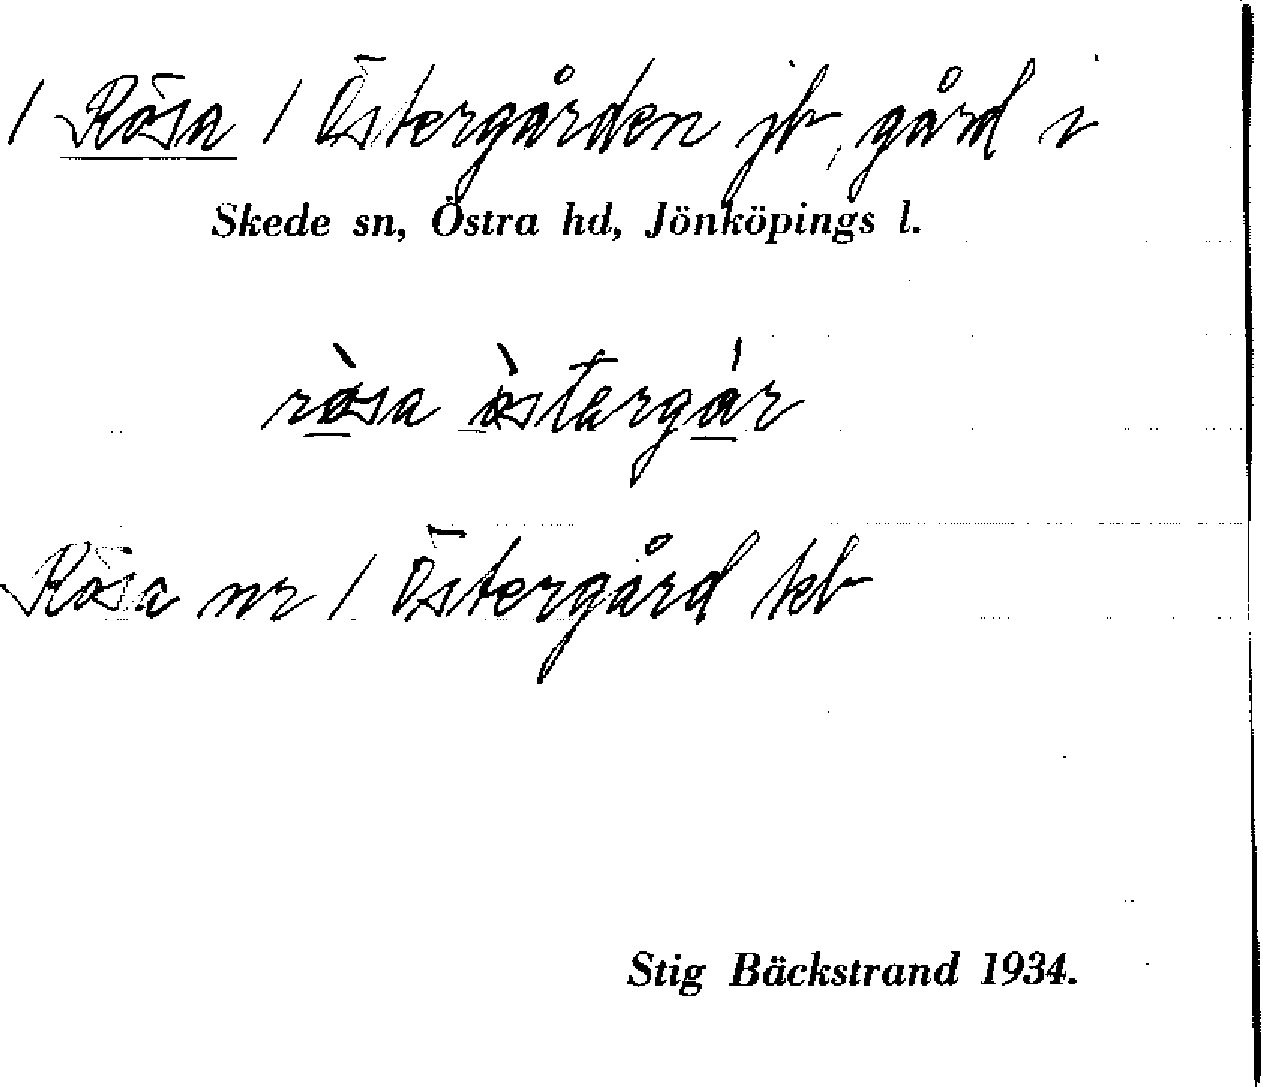 / Rösa / Östergården jb, gård i
Skede sn, Östra hd, Jönköpings l.
rö̀sa ö̀stərgár
Rösa nr 1 Östergård kb
Stig Bäckstrand 1934.